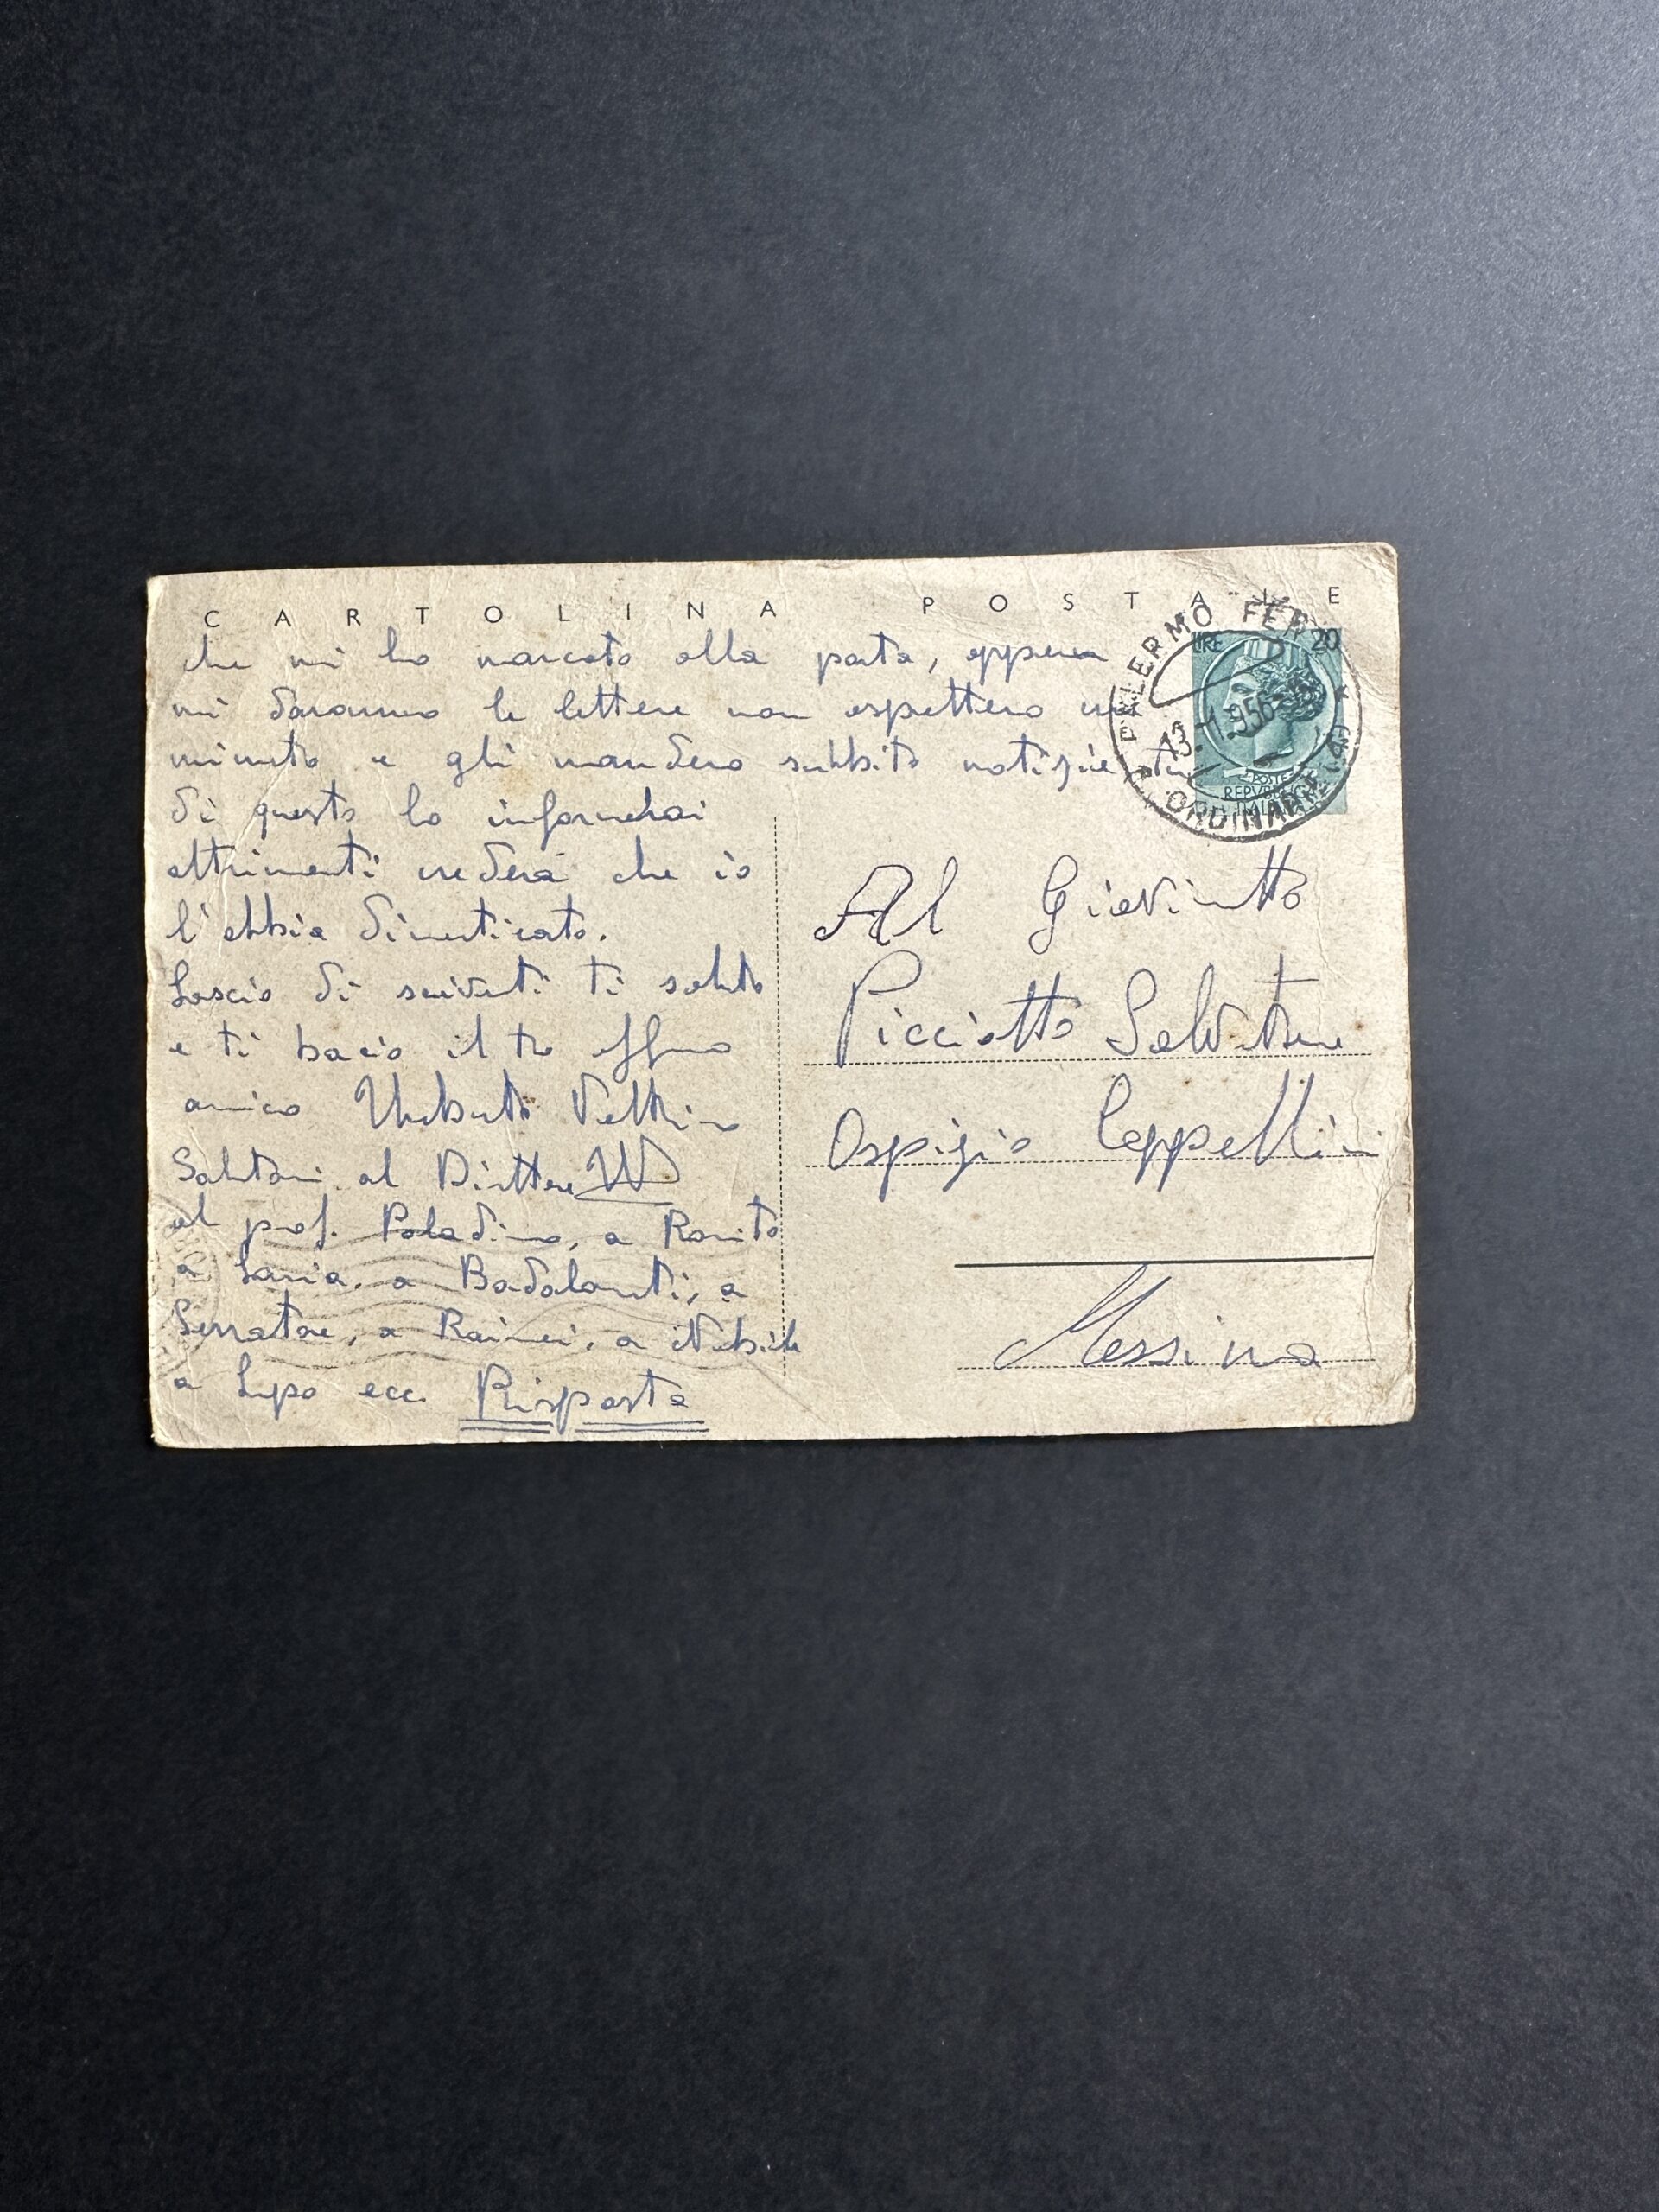 CARTOLINA POSTALE
che mi ho marcato alla porta, appena
mi daranno le lettere non aspettero un
minuto e gli mandero subbito notizie tu
di questo lo informerai
altrimenti crederà che io
l'abbia dimenticato.
Lascio di scriverti ti saluto
e ti bacio il tuo affmo
amico Umberto Vettrino
Salutami al Direttore
al prof. Paladino, a Ranito
a Laria, a Badalanti, a
Serratore, a Raineri, a Nobile
a Lupo ecc. Risposta
PALERMO FERR
ORDINARIE
13.-1.956
LIRE 20
POSTE
REPVBBLICA
ITALIANA
Al Giovinetto
Picciotto Salvatore
Ospizio Cappellini
Messina